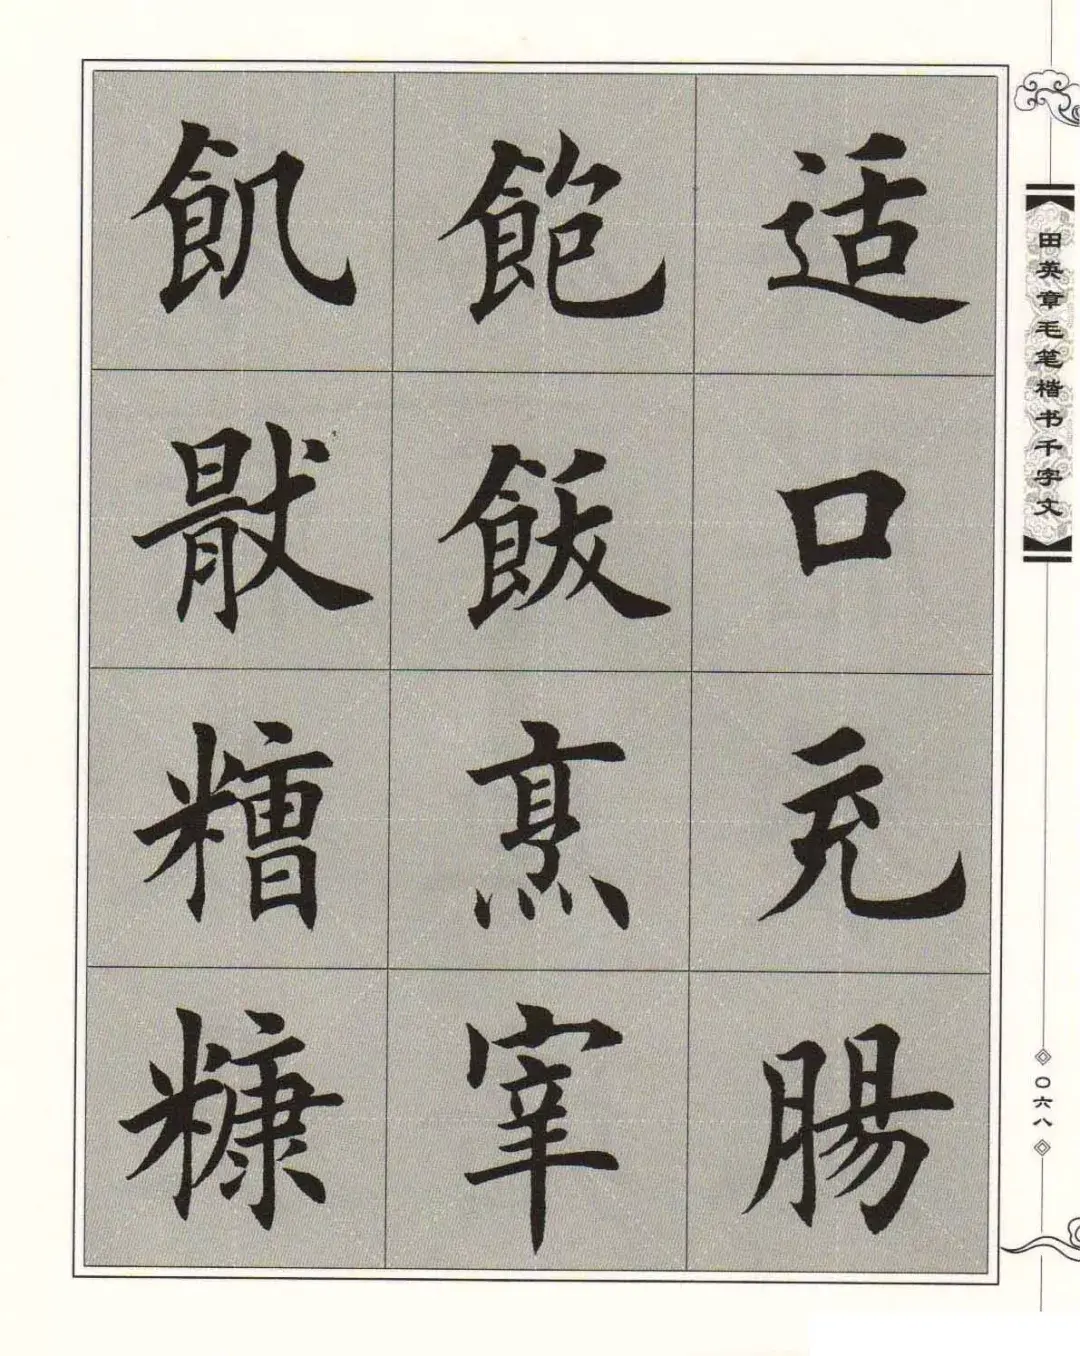 适口充腸
飽飫烹宰
飢猒糟糠
田英章毛笔楷书千字文
〇六八